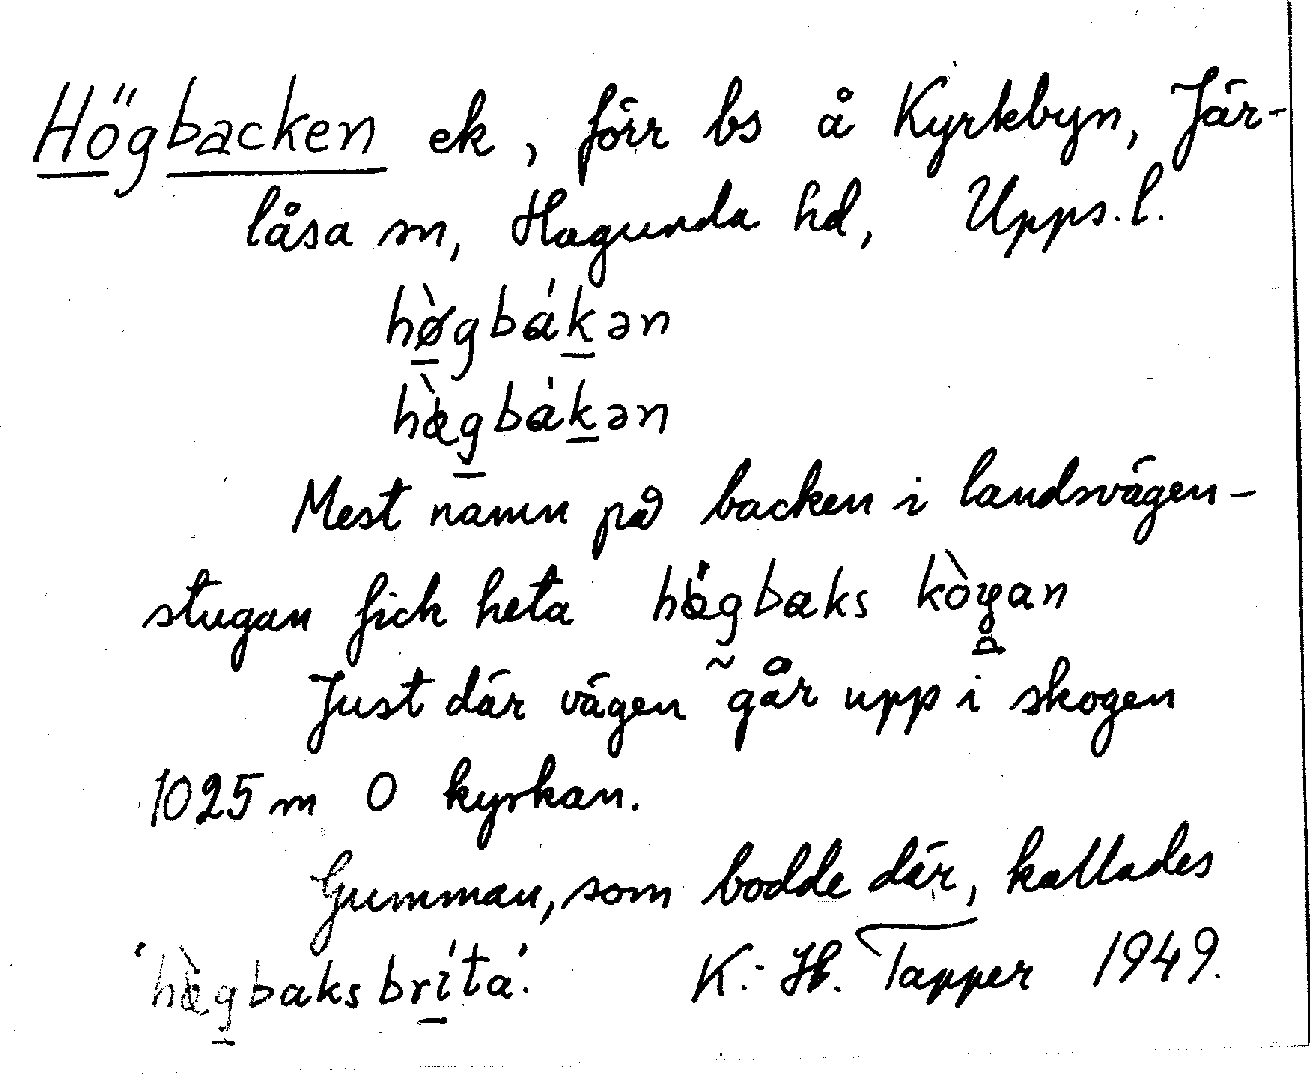 Högbacken ek, förr bs å Kyrkbyn, Jär-
låsa sn, Hagunda hd, Upps.l.
hø̀gbákən
hæ̀gbákən
Mest namn på backen i landsvägen –
stugan fick heta hǽgbaks
Just där vägen går upp i skogen
1025 m O kyrkan.
Gumman, som bodde där, kallades
'hæ̀gbaksbríta'. K.-H. Tapper 1949.